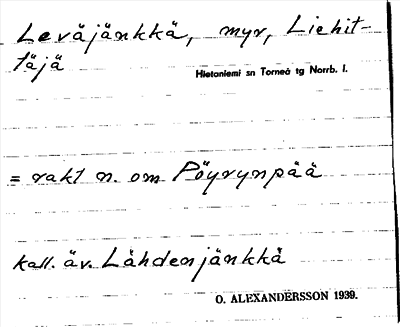 Leväjänkkä, myr, Liehit-
täjä
Hietaniemi sn Torneå tg Norrb. l.
= rakt n. om Pöyrynpää
kall. äv. Lähdenjänkkä
O. ALEXANDERSSON 1939.